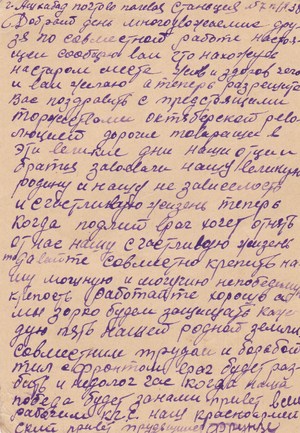 г. Ашхабад почтово полевая станция №
Добрый день многоуважаемые дру
зя по совместной работе настоя
щем сообщаю вам что нахожусь
на старом месте жив и здоров чего
и вам желаю а теперь разрешите
Вас поздравить с предстоящими
торжествами октябрской рево
люцией дорогие товарищи в
эти великие дни наши отци и
братья завоевали нашу великую
родину и нашу не зависемость
и счастливую жизень теперь
когда подлий враг хочет отнять
от нас нашу счастливую жизень
давайте совместно крепить на
шу мощную и могучию непобедимую
крепость работайте хорошо а
мы зорко будем защищать каж
дую пять нашей родной земли
совместним трудом и борьбой
тил с фронтом враг будет раз
бит и недолог час когда наша
победа будет за нами привет всем
рабочим наш красноармей
ский привет трудящимся